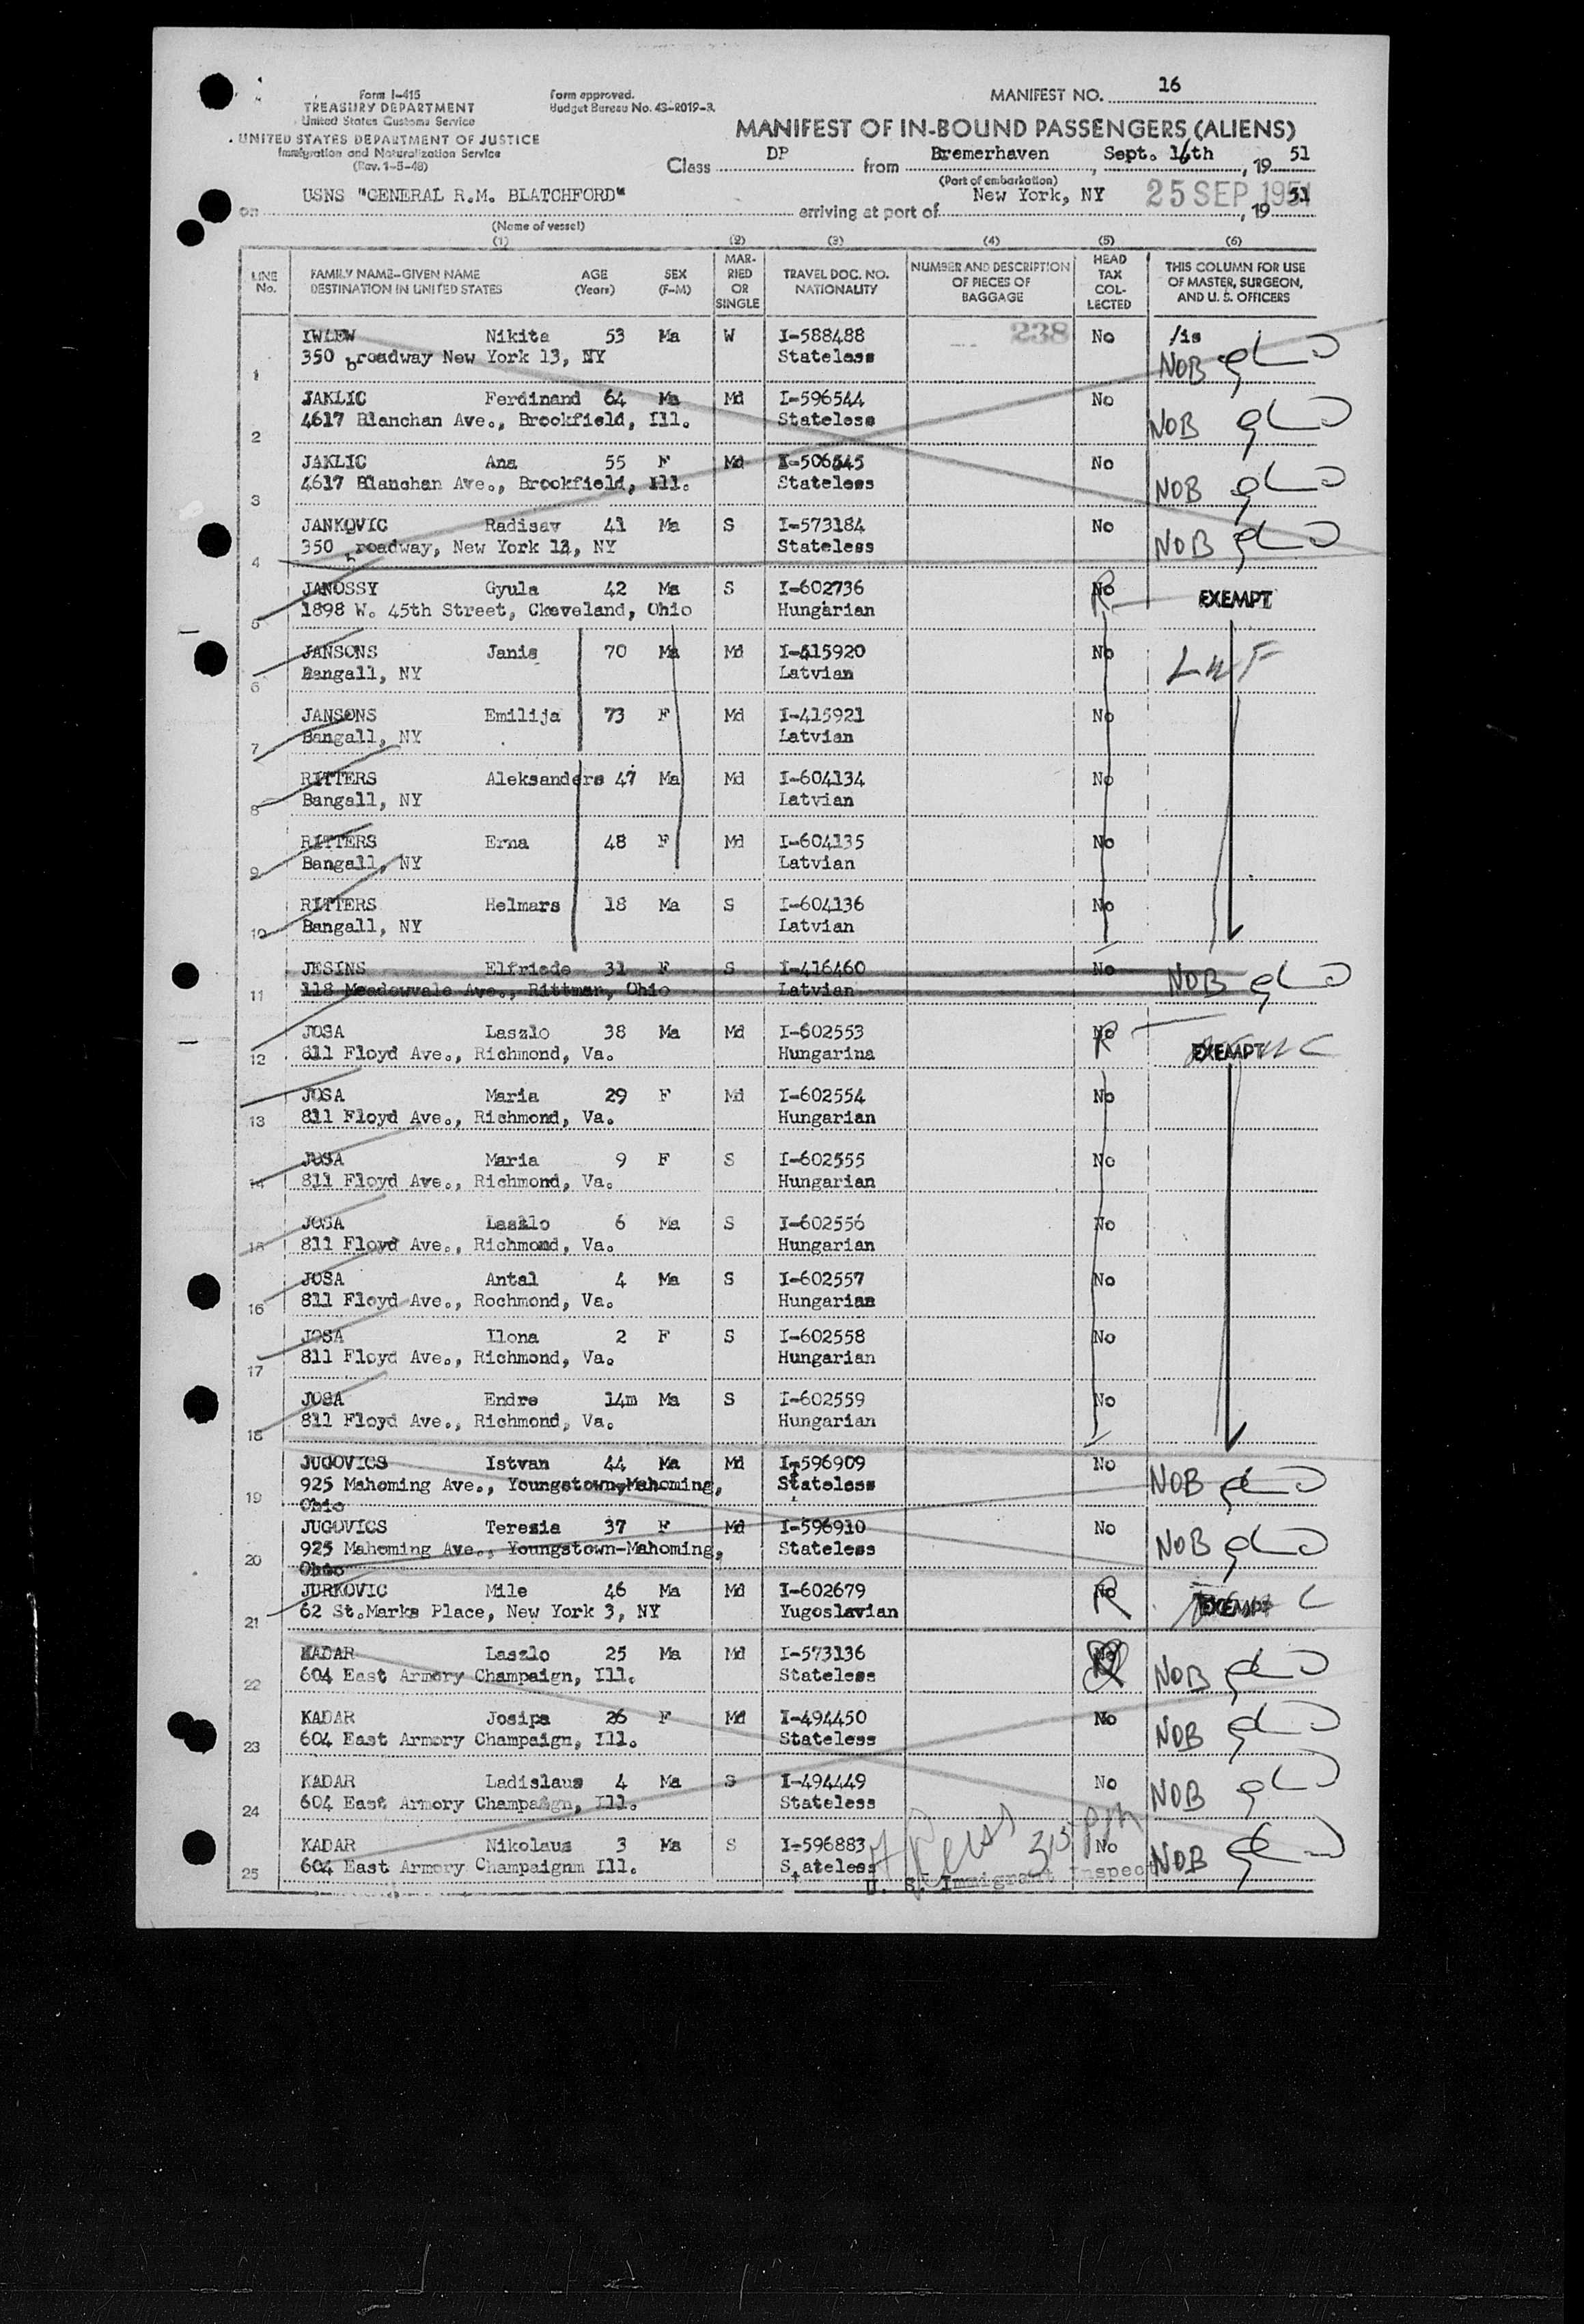 Form I-415
TREASURY DEPARTMENT
United States Customs Service
UNITED STATES DEPARTMENT OF JUSTICE
Immigration and Naturalization Service
(Rev. 1-5-48)
Form approved.
Budget Bureau No. 43-R019-3.
MANIFEST NO. 16
MANIFEST OF IN-BOUND PASSENGERS (ALIENS)
Class DP from Bremerhaven, Sept. 16th, 19 51
(Port of embarkation)
on USNS "GENERAL R.M. BLATCHFORD" arriving at port of New York, NY 25 SEP 1951, 19 51
(Name of vessel)
(1) (2) (3) (4) (5) (6)
LINE No. FAMILY NAME-GIVEN NAME DESTINATION IN UNITED STATES AGE (Years) SEX (F-M) MARRIED OR SINGLE TRAVEL DOC. NO. NATIONALITY NUMBER AND DESCRIPTION OF PIECES OF BAGGAGE HEAD TAX COLLECTED THIS COLUMN FOR USE OF MASTER, SURGEON, AND U. S. OFFICERS
IWLEW Nikita 53 Ma W I-588488 238 No /is
1 350 broadway New York 13, NY Stateless NOB
JAKLIC Ferdinand 64 Ma Md I-596544 No
2 4617 Blanchan Ave., Brookfield, Ill. Stateless NOB
JAKLIC Ana 55 F Md I-506545 No
3 4617 Blanchan Ave., Brookfield, Ill. Stateless NOB
JANKOVIC Radisav 41 Ma S I-573184 No
4 350 broadway, New York 13, NY Stateless NOB
JANOSSY Gyula 42 Ma S I-602736 No R EXEMPT
5 1898 W. 45th Street, Ckeveland, Ohio Hungarian
JANSONS Janis 70 Ma Md I-415920 No
6 Bangall, NY Latvian
JANSONS Emilija 73 F Md I-415921 No
7 Bangall, NY Latvian
RITTERS Aleksanders 47 Ma Md I-604134 No
8 Bangall, NY Latvian
RITTERS Erna 48 F Md I-604135 No
9 Bangall, NY Latvian
RITTERS Helmars 18 Ma S I-604136 No
10 Bangall, NY Latvian
JESINS Elfriede 31 F S I-416460 No
11 118 Meadowvale Ave., Rittman, Ohio Latvian NOB
JOSA Laszlo 38 Ma Md I-602553 No R
12 811 Floyd Ave., Richmond, Va. Hungarina EXEMPT
JOSA Maria 29 F Md I-602554 No
13 811 Floyd Ave., Richmond, Va. Hungarian
JOSA Maria 9 F S I-602555 No
14 811 Floyd Ave., Richmond, Va. Hungarian
JOSA Laszlo 6 Ma S I-602556 No
15 811 Floyd Ave., Richmond, Va. Hungarian
JOSA Antal 4 Ma S I-602557 No
16 811 Floyd Ave., Rochmond, Va. Hungarian
JOSA Ilona 2 F S I-602558 No
17 811 Floyd Ave., Richmond, Va. Hungarian
JOSA Endre 14m Ma S I-602559 No
18 811 Floyd Ave., Richmond, Va. Hungarian
JUGOVICS Istvan 44 Ma Md I-596909 No
19 925 Mahoming Ave., Youngstown-Mahoming, Stateless NOB
Ohio
JUGOVICS Teresia 37 F Md I-596910 No
20 925 Mahoming Ave., Youngstown-Mahoming, Stateless NOB
Ohio
JURKOVIC Mile 46 Ma Md I-602679 No R
21 62 St.Marks Place, New York 3, NY Yugoslavian EXEMPT
KADAR Laszlo 25 Ma Md I-573136 No
22 604 East Armory Champaign, Ill. Stateless NOB
KADAR Josipa 26 F Md I-494450 No
23 604 East Armory Champaign, Ill. Stateless NOB
KADAR Ladislaus 4 Ma S I-494449 No
24 604 East Armory Champaign, Ill. Stateless NOB
KADAR Nikolaus 3 Ma S I-596883 No
25 604 East Armory Champaignm Ill. Stateless NOB
U. S. Immigrant Inspector